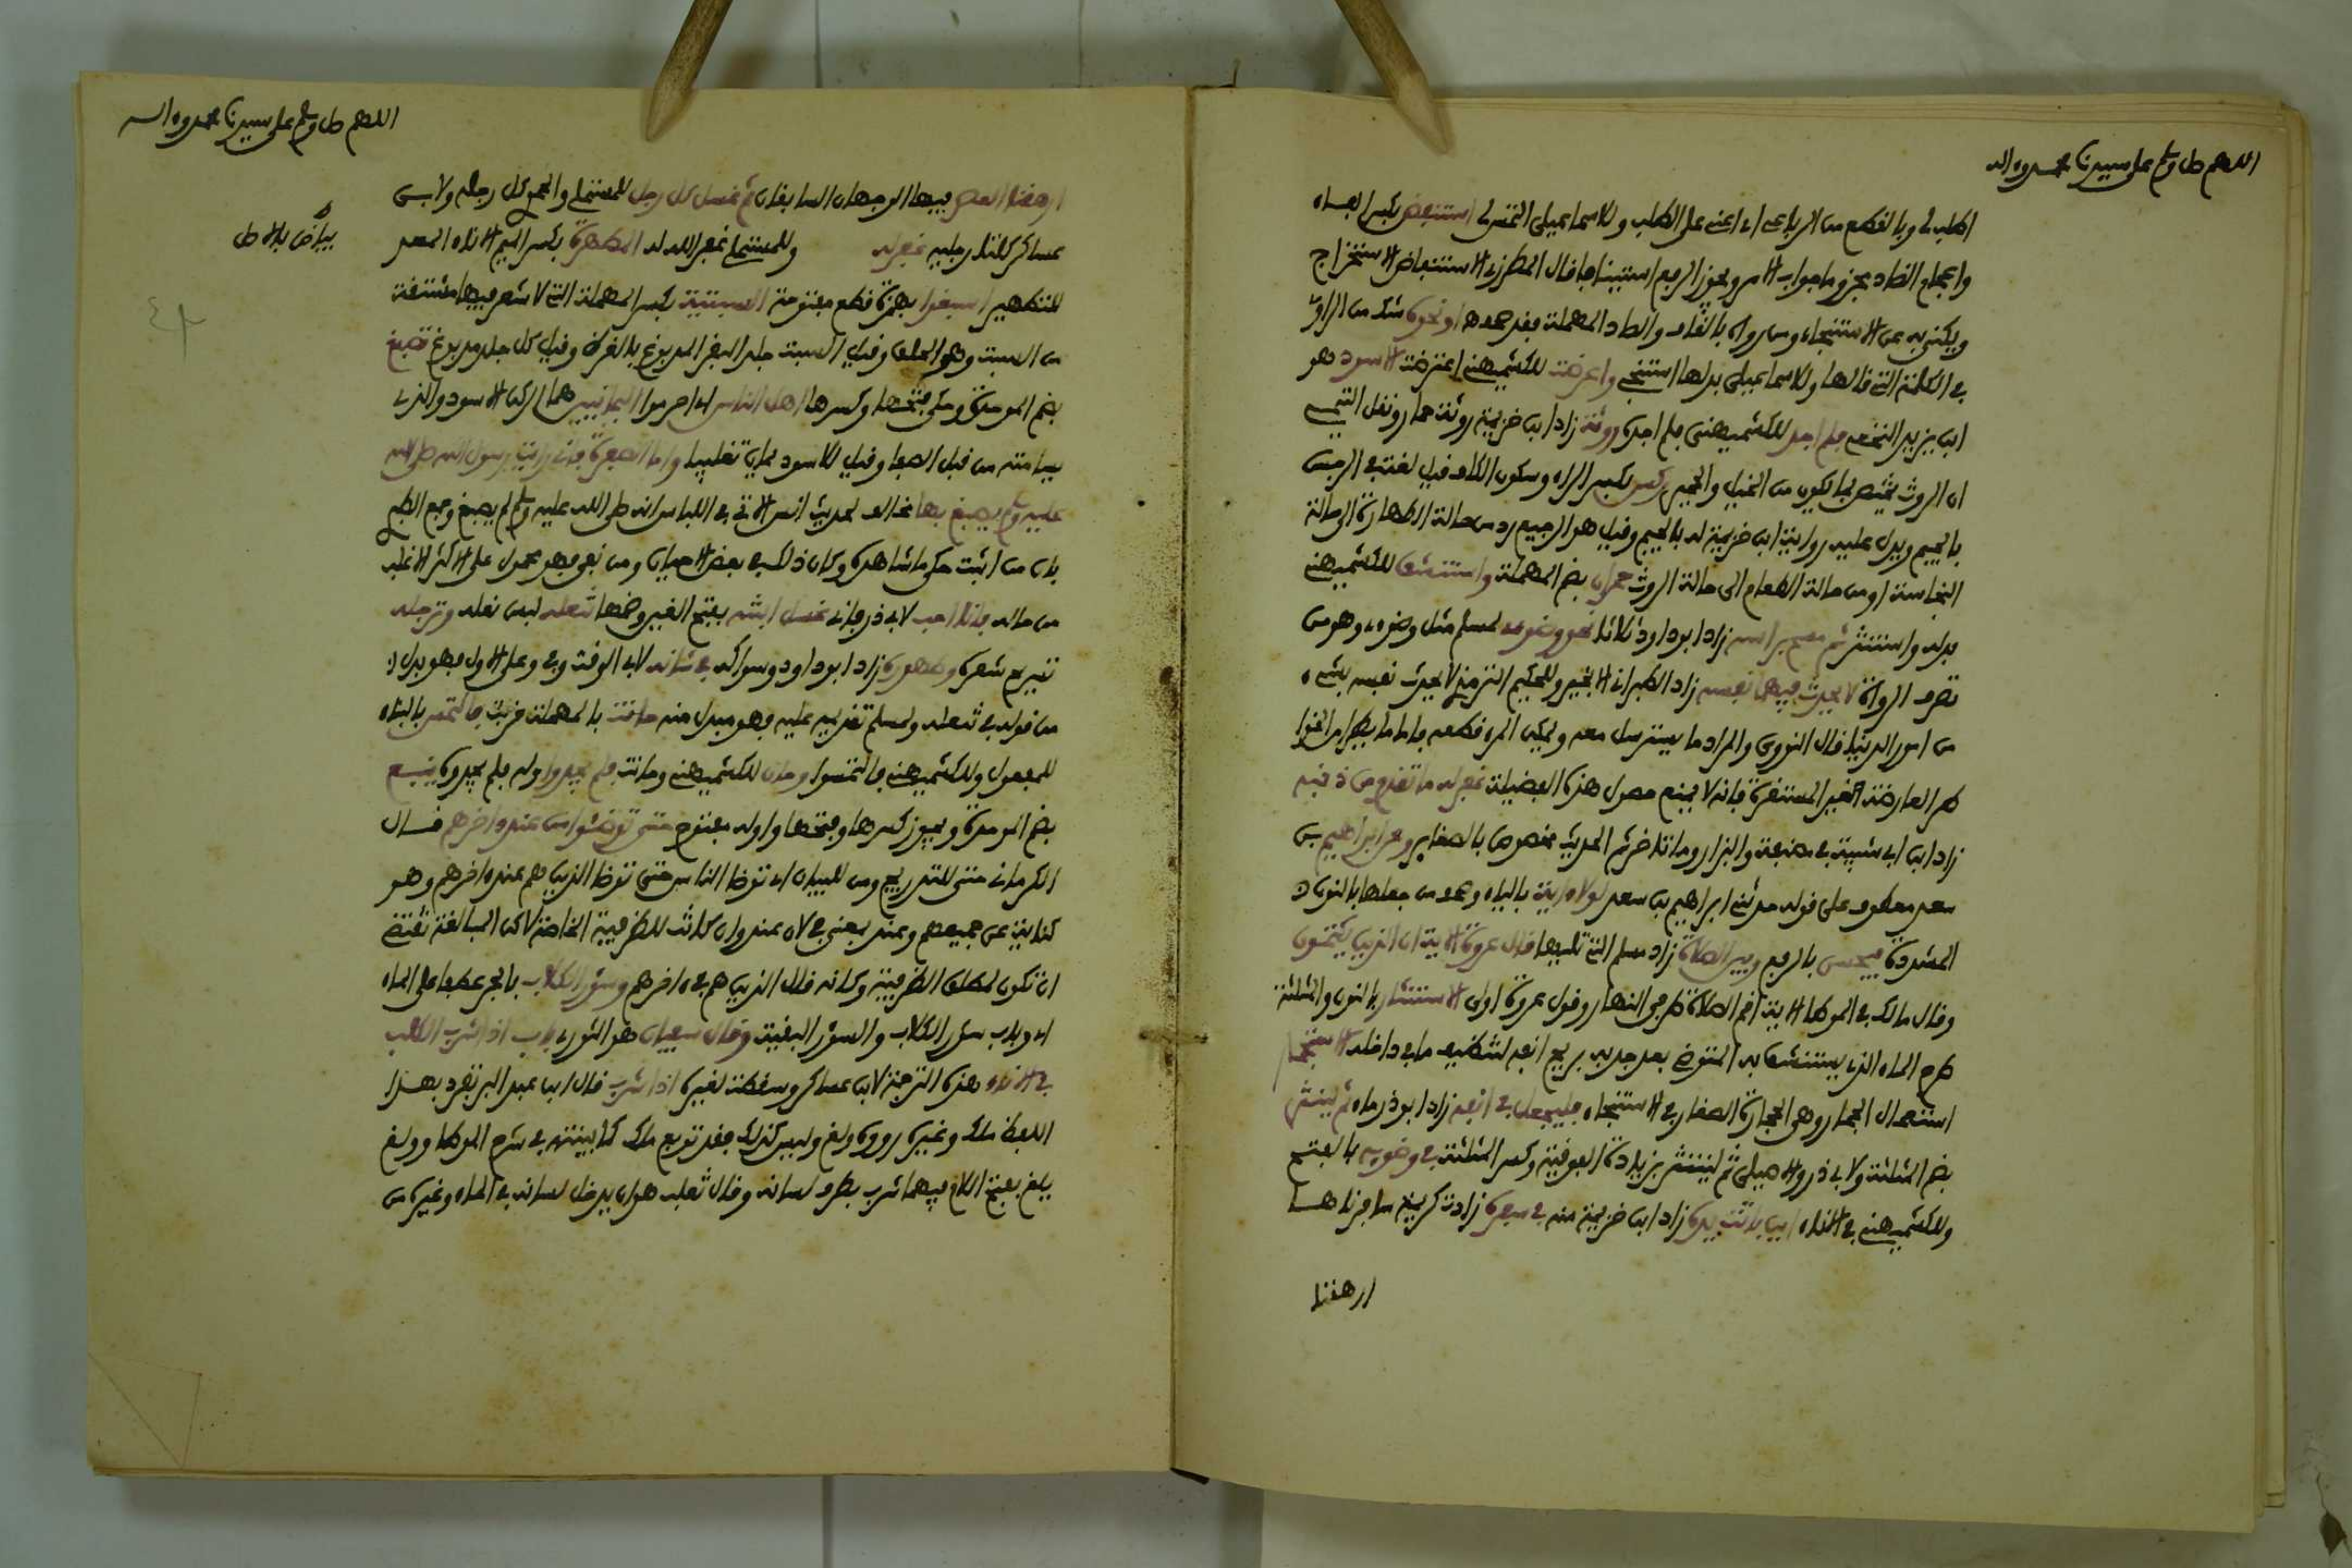 اللهم صل وسلم على سيدنا محمد وءاله
اطلب لي وبالقطع من الرباعي أي أعني على الطلب وللاسماعيلي ائتني استنفض بكسر الفاء
وإعجام الضاد مجزوما جواب الامر ويجوز الرفع استينافا قال المطرزي الاستنفاض الاستخراج
ويكنى به عن الاستنجاء ومن رواه بالقاف والصاد المهملة فقد صحف أو نحوه شك من الراوي
في الكلمة التي قالها وللاسماعيلي بدلها أستنجي وأعرضت للكشميهني اعترضت الاسود هو
ابن يزيد النخعي فلم أجد للكشميهني فلم أجده روثة زاد ابن خزيمة روثة حمار ونقل التيمي
ان الروث يختص بما يكون من الخيل والحمير ركس بكسر الراء وسكون الكاف قيل لغة في الرجس
بالجيم ويدل عليه رواية ابن خزيمة له بالجيم وقيل هو الرجيع رد من حالة الطهارة الى حالة
النجاسة أو من حالة الطعام الى حالة الروث حمران بضم المهملة واستنشق للكشميهني
بدله واستنثر ثم مسح برأسه زاد أبو داود ثلاثا نحو وضوءي لمسلم مثل وضوءي وهو من
تصرف الرواة لا يحدث فيهما نفسه زاد الطبراني الا بخير وللحكيم الترمذي لا يحدث نفسه بشيء
من أمور الدنيا قال النووي والمراد ما يسترسل معه ويمكن المرء قطعه فاما ما يطرأ من الخوا
طر العارضة الغير المستقرة فانه لا يمنع حصول هذه الفضيلة غفر له ما تقدم من ذنبه
زاد ابن أبي شيبة في مصنفه والبزار وما تأخر ثم الحديث مخصوص بالصغاير وعن ابراهيم بن
سعد معطوف على قوله حدثني ابراهيم بن سعد لولا ءاية بالياء وصحف من جعلها بالنون
المشددة فيحسن بالرفع وبين الصلاة زاد مسلم التي تليها قال عروة الاية ان الذين يكتمون
وقال مالك في الموطا الاية أقم الصلاة طرفي النهار وقول عروة أولى الاستنثار بالنون والمثلثة
طرح الماء الذي يستنشق به المتوضئ بعد جذبه بريح أنفه لتنظيف ما في داخله الاستجمار
استعمال الجمار وهي الحجارة الصغار في الاستنجاء فليجعل في أنفه زاد أبو ذر ماء ثم لينثر
بضم المثلثة ولابي ذر والاصيلي ثم لينتثر بزيادة الفوقية وكسر المثلثة في وضوءه بالفتح
وللكشميهني في الاناء أين باتت يده زاد ابن خزيمة منه في سفرة زادت كريمة سافرناها
ارهقنا
اللهم صل وسلم على سيدنا محمد وءاله
ارهقنا العصر فيها الوجهان السابقان ثم غسل كل رجل للمستملي والحمو كل رجله ولابن
عساكر كلتا رجليه غفر له وللمستملي غفر الله له المطهرة بكسر الميم الاناء المعد
بياض بالاصل
للتطهير أسبغوا بهمزة قطع مفتوحة السبتية بكسر المهملة التي لا شعر فيها مشتقة
من السبت وهو الحلق وقيل السبت جلد البقر المدبوغ بالقرظ وقيل كل جلد مدبوغ تصبغ
بضم الموحدة وحكي فتحها وكسرها أهل الناس أي أحرموا اليمانيين هما الركن الاسود والذي
يسامته من قبل الصفا وقيل للاسود يمان تغليبا وأما الصفرة فاني رأيت رسول الله صلى الله
عليه وسلم يصبغ بها مخالف لحديث أنس الاتي في اللباس انه صلى الله عليه وسلم لم يصبغ وجمع الطبري
بان من أثبت حكى ما شاهده وكان ذلك في بعض الاحيان ومن نفى فهو محمول على الاكثر الاغلب
من حاله فانا أحب لابي ذر فاني غسل ابنته بفتح الغين وضمها تنعله لبس نعله وترجله
تسريح شعره وطهوره زاد أبو داود وسواكه في شأنه لابي الوقت وفي وعلى الاول فهو بدل
من قوله في تنعله ولمسلم تقديمه عليه فهو مبدل منه حانت بالمهملة قربت فالتمس بالبناء
للمفعول وللكشميهني فالتمسوا وحان للكشميهني وحانت فلم يجدوا وله فلم يجدوه ينبع
بضم الموحدة ويجوز كسرها وفتحها وأوله مفتوح حتى توضئوا من عند ءاخرهم قال
الكرماني حتى للتدريج ومن للبيان أي توضا الناس حتى توضا الذين هم عند ءاخرهم وهو
كناية عن جميعهم وعند بمعنى في لان عند وان كانت للظرفية الخاصة لاكن المبالغة تقتضي
ان تكون لمطلق الظرفية وكانه قال الذين هم في ءاخرهم وسؤر الكلاب بالجر عطفا على الماء
أي وباب سؤر الكلاب والسؤر البقية وقال سفيان هو الثوري باب اذا شرب الكلب
في الاناء هذه الترجمة لابن عساكر وسقطت لغيره اذا شرب قال ابن عبد البر تفرد بهذا
اللفظ ملك وغيره رووه ولغ وليس كذلك فقد توبع ملك كما بينته في شرح الموطا وولغ
يلغ بفتح اللام فيهما شرب بطرف لسانه وقال ثعلب هو ان يدخل لسانه في الماء وغيره من